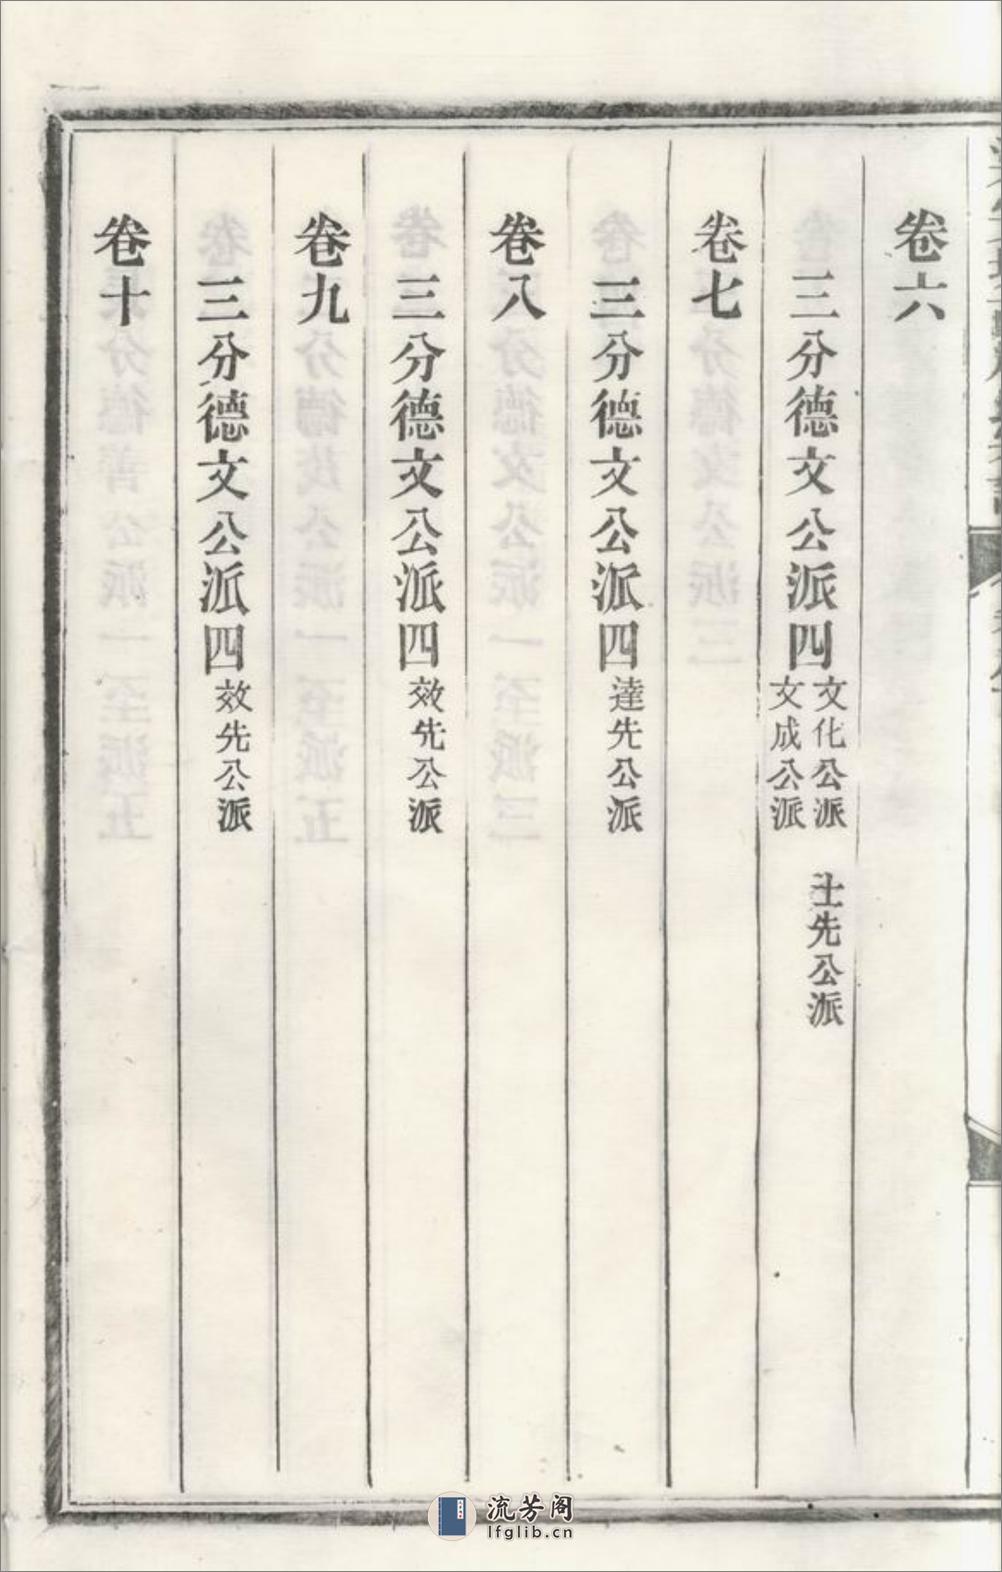 卷六
三分德文公派四 文化公派 士先公派
文成公派
卷七
三分德文公派四 達先公派
卷八
三分德文公派四 效先公派
卷九
三分德文公派四 效先公派
卷十
流芳阁
lfglib.cn